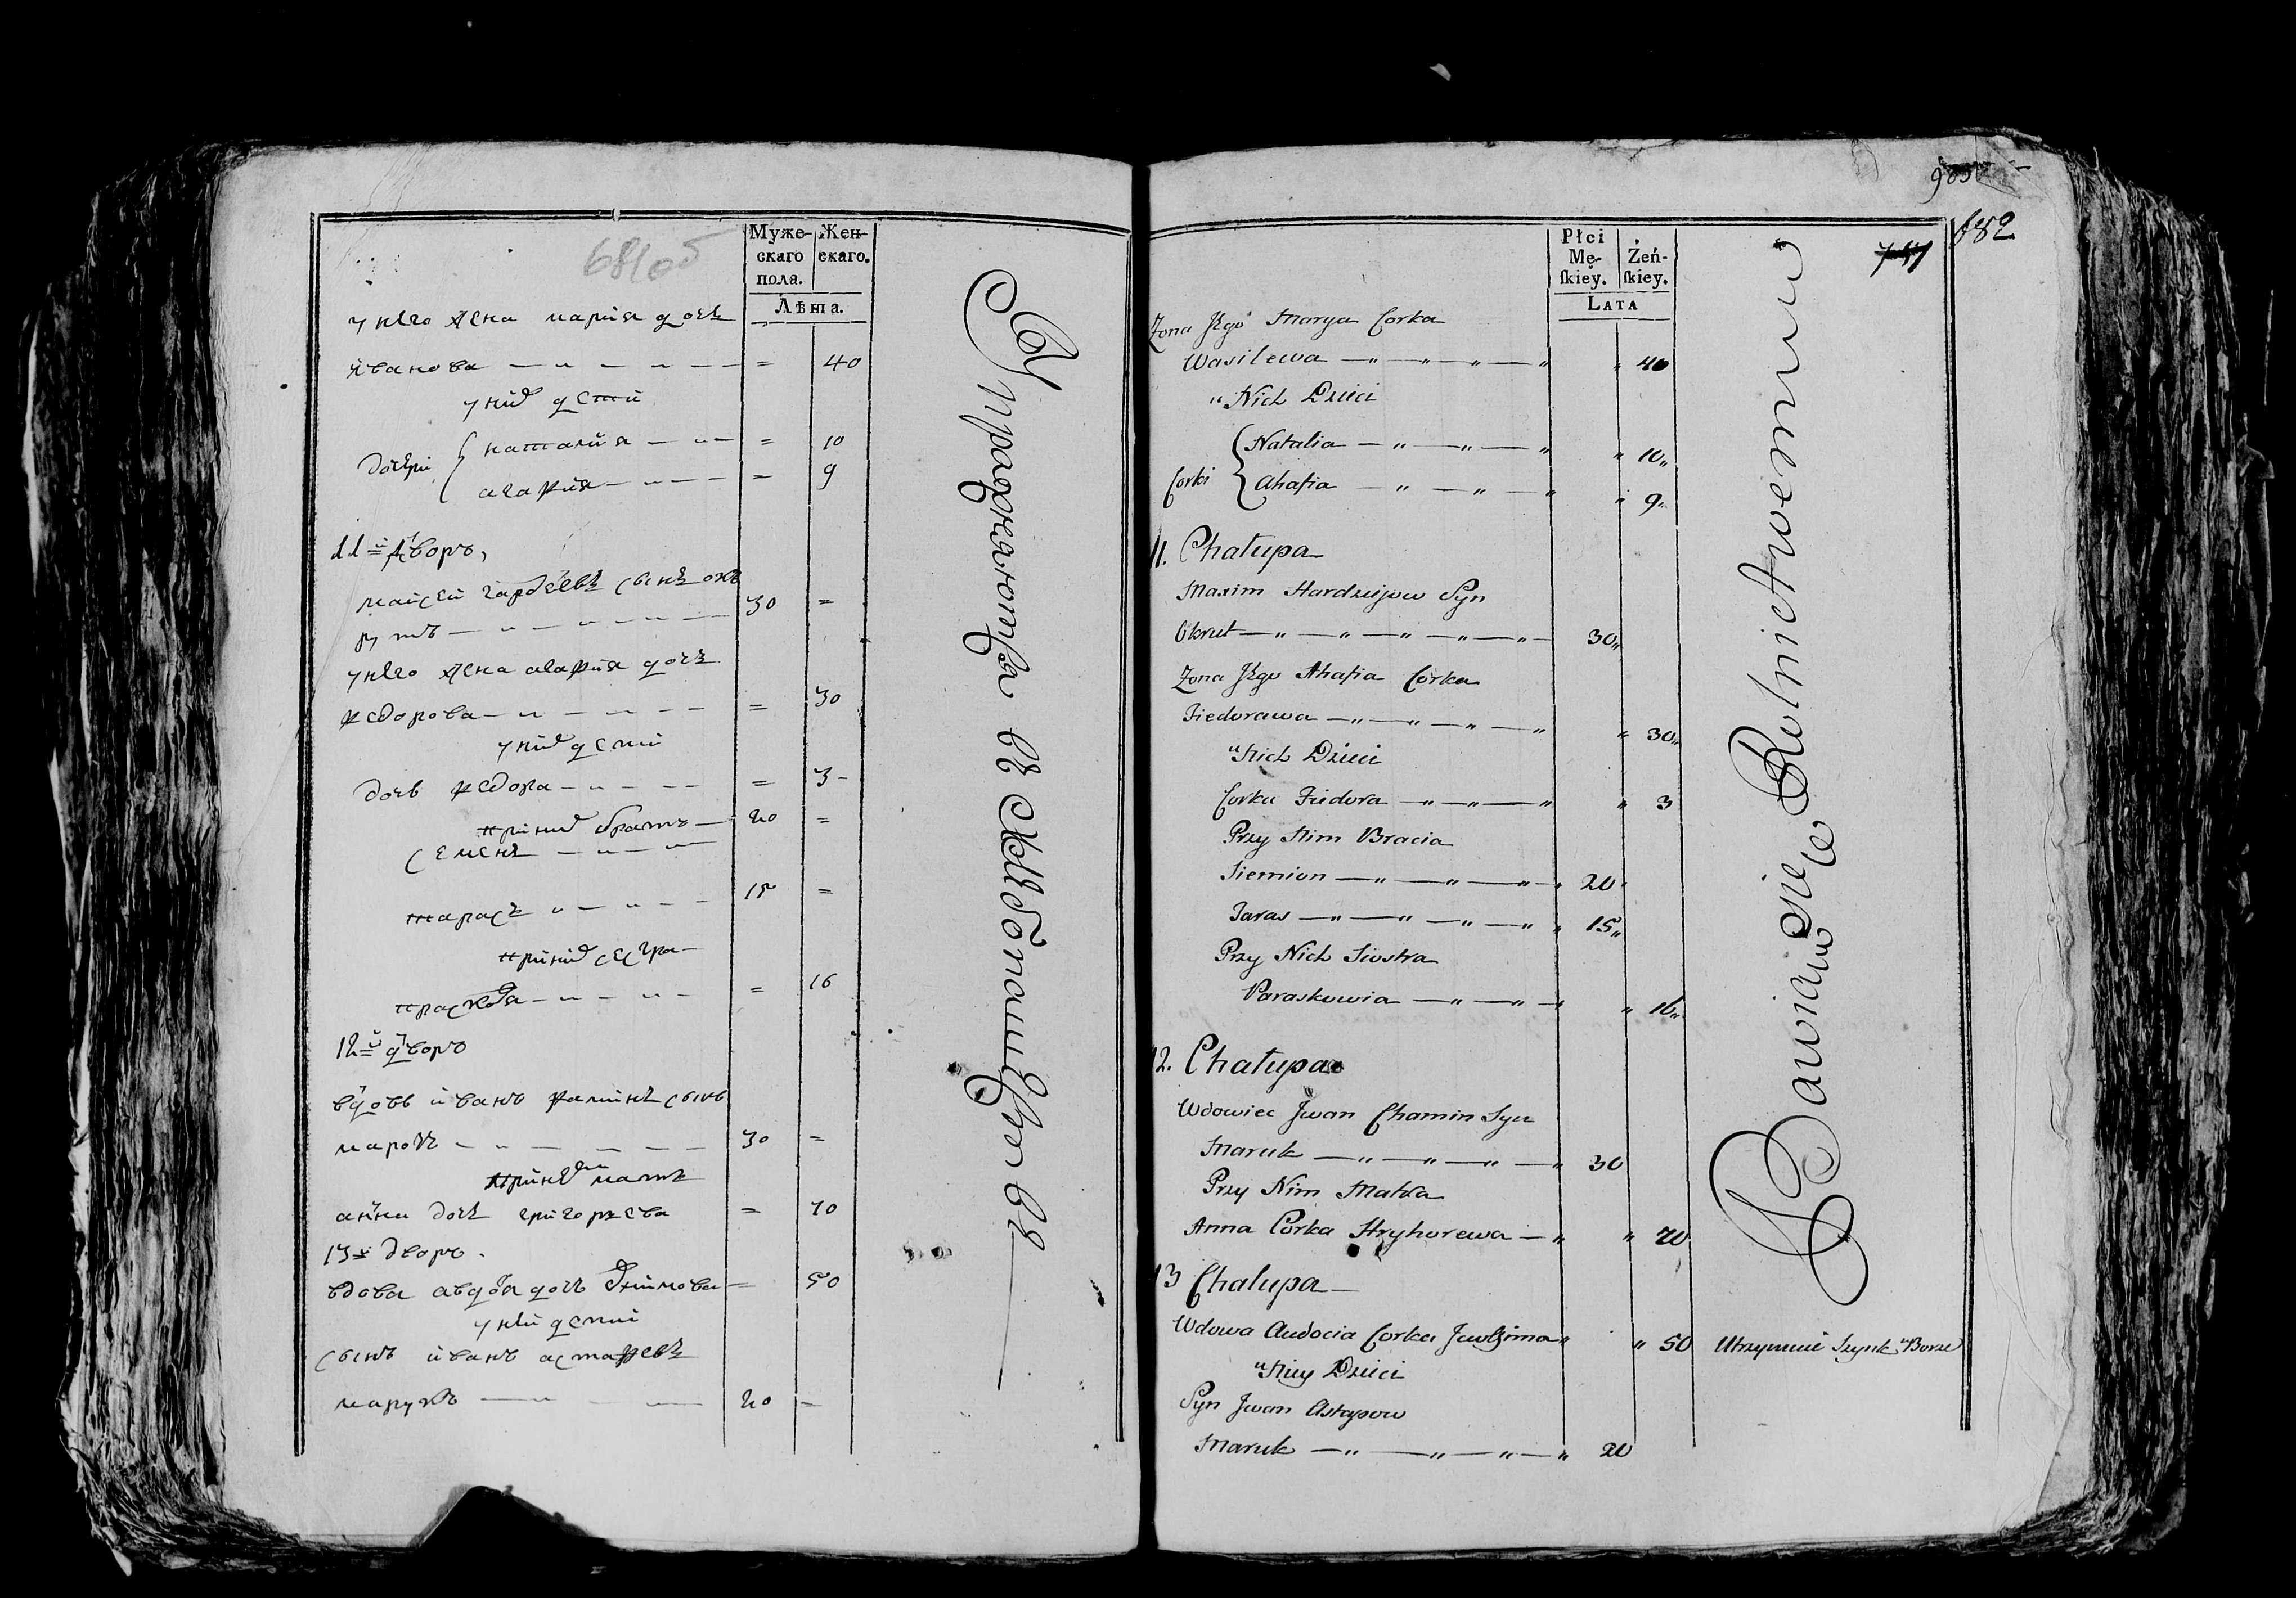 681об
Муже-
скаго
пола.
Жен-
скаго.
Лѣта.
у него жена мария дочь
иванова — " — " — = 40
у них дети
дочери { наталия — " — = 10
агафия — " — = 9
11й дворъ,
гардеевъ сынъ ок
рутъ — " — " — 30 =
у него жена агафия дочь
федорова — " — " — = 30
у них дети
дочь федора — " — = 3
при нем братъ — 20 =
семенъ — " — "
тарасъ " — " — 15 =
при них сестра
— " — " — = 16
12й дворъ
вдовъ иванъ фаминъ сынъ
марокъ — " — " — 30 =
при нем мать
анна дочь григорьева = 70
13й дворъ.
вдова авдотя дочь = 50
у ней дети
сынъ иванъ астафевъ
марукъ — " — 20 =
Упражняются въ хлебопашестве
903
747
682
Płci
Mę-
skiey.
Żeń-
skiey.
Lata
Zona Jego Marya Corka
Wasilewa — " — " — " — " " 40
"Nich Dzieci
Corki { Natalia — " — " — " " 10"
Ahafia — " — " — " " 9"
11. Chałupa
Maxim Hardziejow Syn
Okrut — " — " — " — " — " — 30"
Zona Jego Ahafia Corka
Fiedorawa — " — " — " — " " 30"
"Nich Dzieci
Corka Fiedora — " — " — " " 3
Przy Nim Bracia
Siemion — " — " — " — " 20"
Taras — " — " — " — " " 15"
Przy Nich Siostra
Paraskowia — " — " — " 16"
12. Chałupa
Wdowiec Jwan Chamin Syn
Maruk — " — " — " — " 30
Przy Nim Matka
Anna Corka Hryhorewa — " " 70
13 Chałupa —
Wdowa Audocia Corka " " 50 Utrzymuie Szynk "Borze
"Niey Dzieci
Syn Jwan Astapow
Maruk — " — " — " — " 20
Bawiąw się Rolnictwem